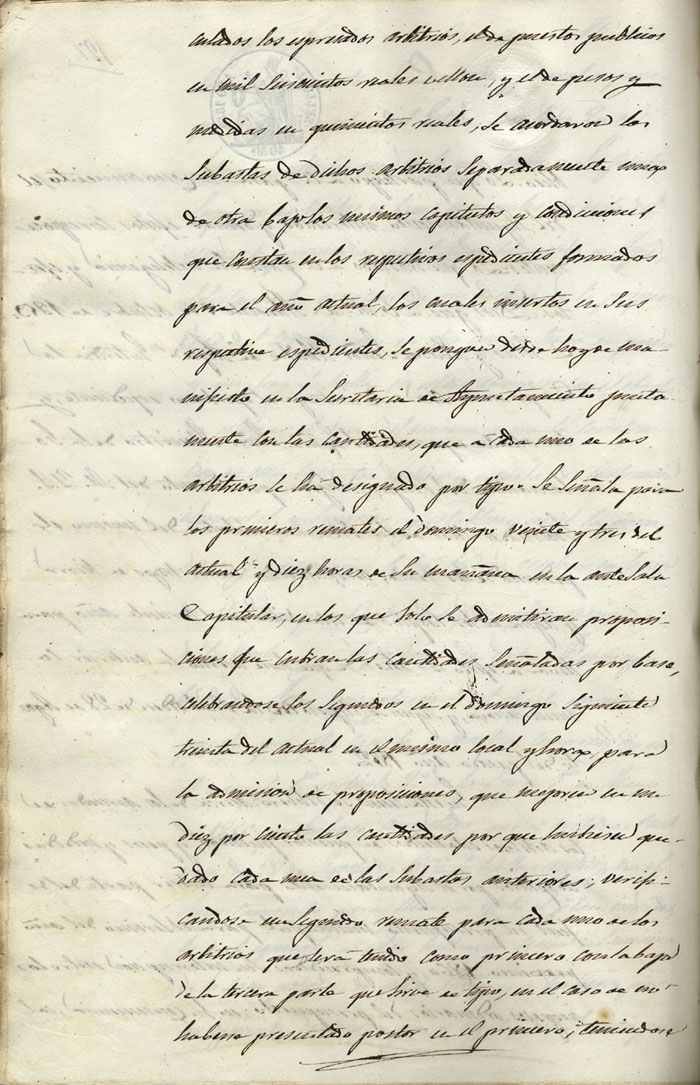 culados los espresados arbitrios, el de puestos publicos
en mil seiscientos reales vellon, y el de pesos y
medidas en quinientos reales, se acordaron las
Subastas de dichos arbitrios separadamente unax
de otra bajo los mismos capitulos y condiciones
que constan en los respectivos espedientes formados
para el año actual, los cuales insertos en sus
respective espedientes, se pongan desde hoy de ma-
nifiesto en la Secretaria de Ayuntamiento junta-
mente con las cantidades, que a cada uno de los
arbitrios se ha designado por tipo. Se señala para
los primeros remates el domingo veinte y tres del
actual y diez horas de su mañana en la ante Sala
Capitular, en los que solo se admitiran proposi-
ciones que cubran las cantidades señaladas por base,
celebrandose los segundos en el domingo siguiente
treinta del actual en el mismo local y horax para
la admision de proposiciones, que mejoren en un
diez por ciento las cantidades, por que hubiesen que-
dado cada una de las Subastas anteriores; verifi-
candose un segundo remate para cada uno de los
arbitrios que será tenido como primero con la baja
de la tercera parte que sirve de tipo, en el caso de no
haberse presentado postor en el primero; teniendose